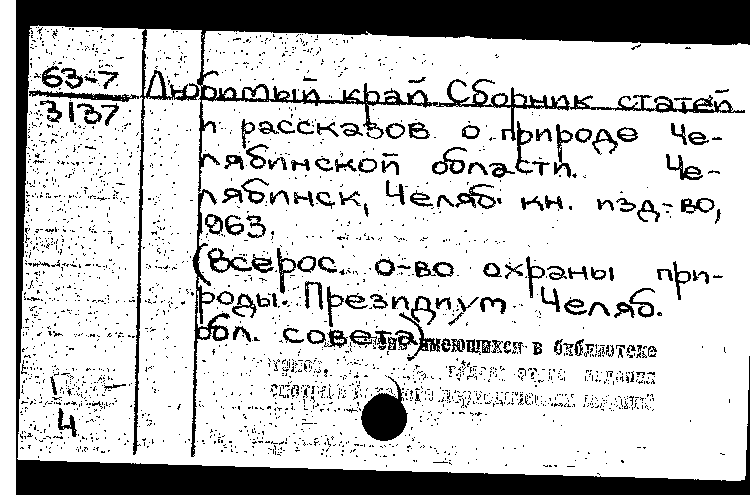 63-7
3137
Любимый край Сборник статей
и рассказов о природе Че-
лябинской области. Че-
лябинск, Челяб. кн. изд-во,
1963.
(Всерос. о-во охраны при-
роды. Президиум Челяб.
обл. совета)
имеющихся в библиотеке
издания
4